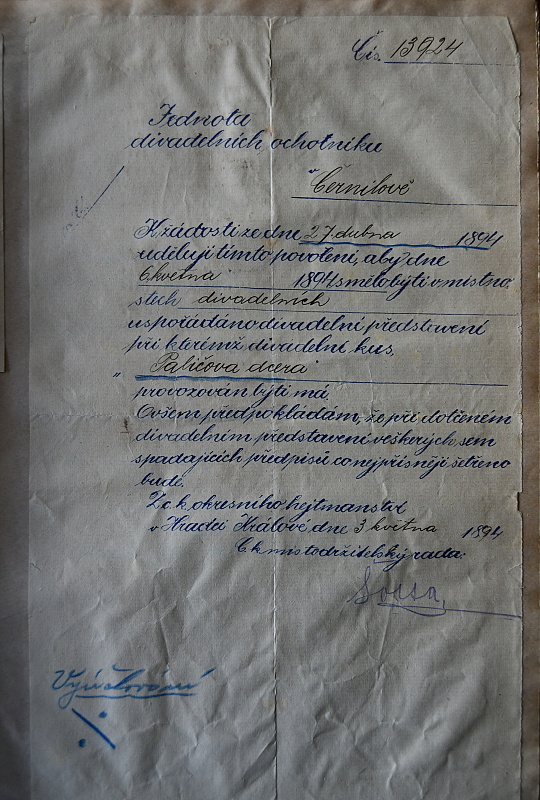 Čís. 13924
Jednota
divadelních ochotníku
v Černilově
K žádosti ze dne 27. dubna 1894
uděluji tímto povolení, aby dne
6. května 1894 smělo býti v místno
stech divadelních
uspořádáno divadelní představení
při kterémž divadelní kus,
„ Paličova dcera"
provozován býti má.
Ovšem předpokládám, že při dotčeném
divadelním představení veškerých sem
spadajících předpisů co nejpřísněji šetřeno
bude.
Z c. k. okresního hejtmanství
v Hradci Králové, dne 3 května 1894
C k místodržitelský rada:
Vyúčtování